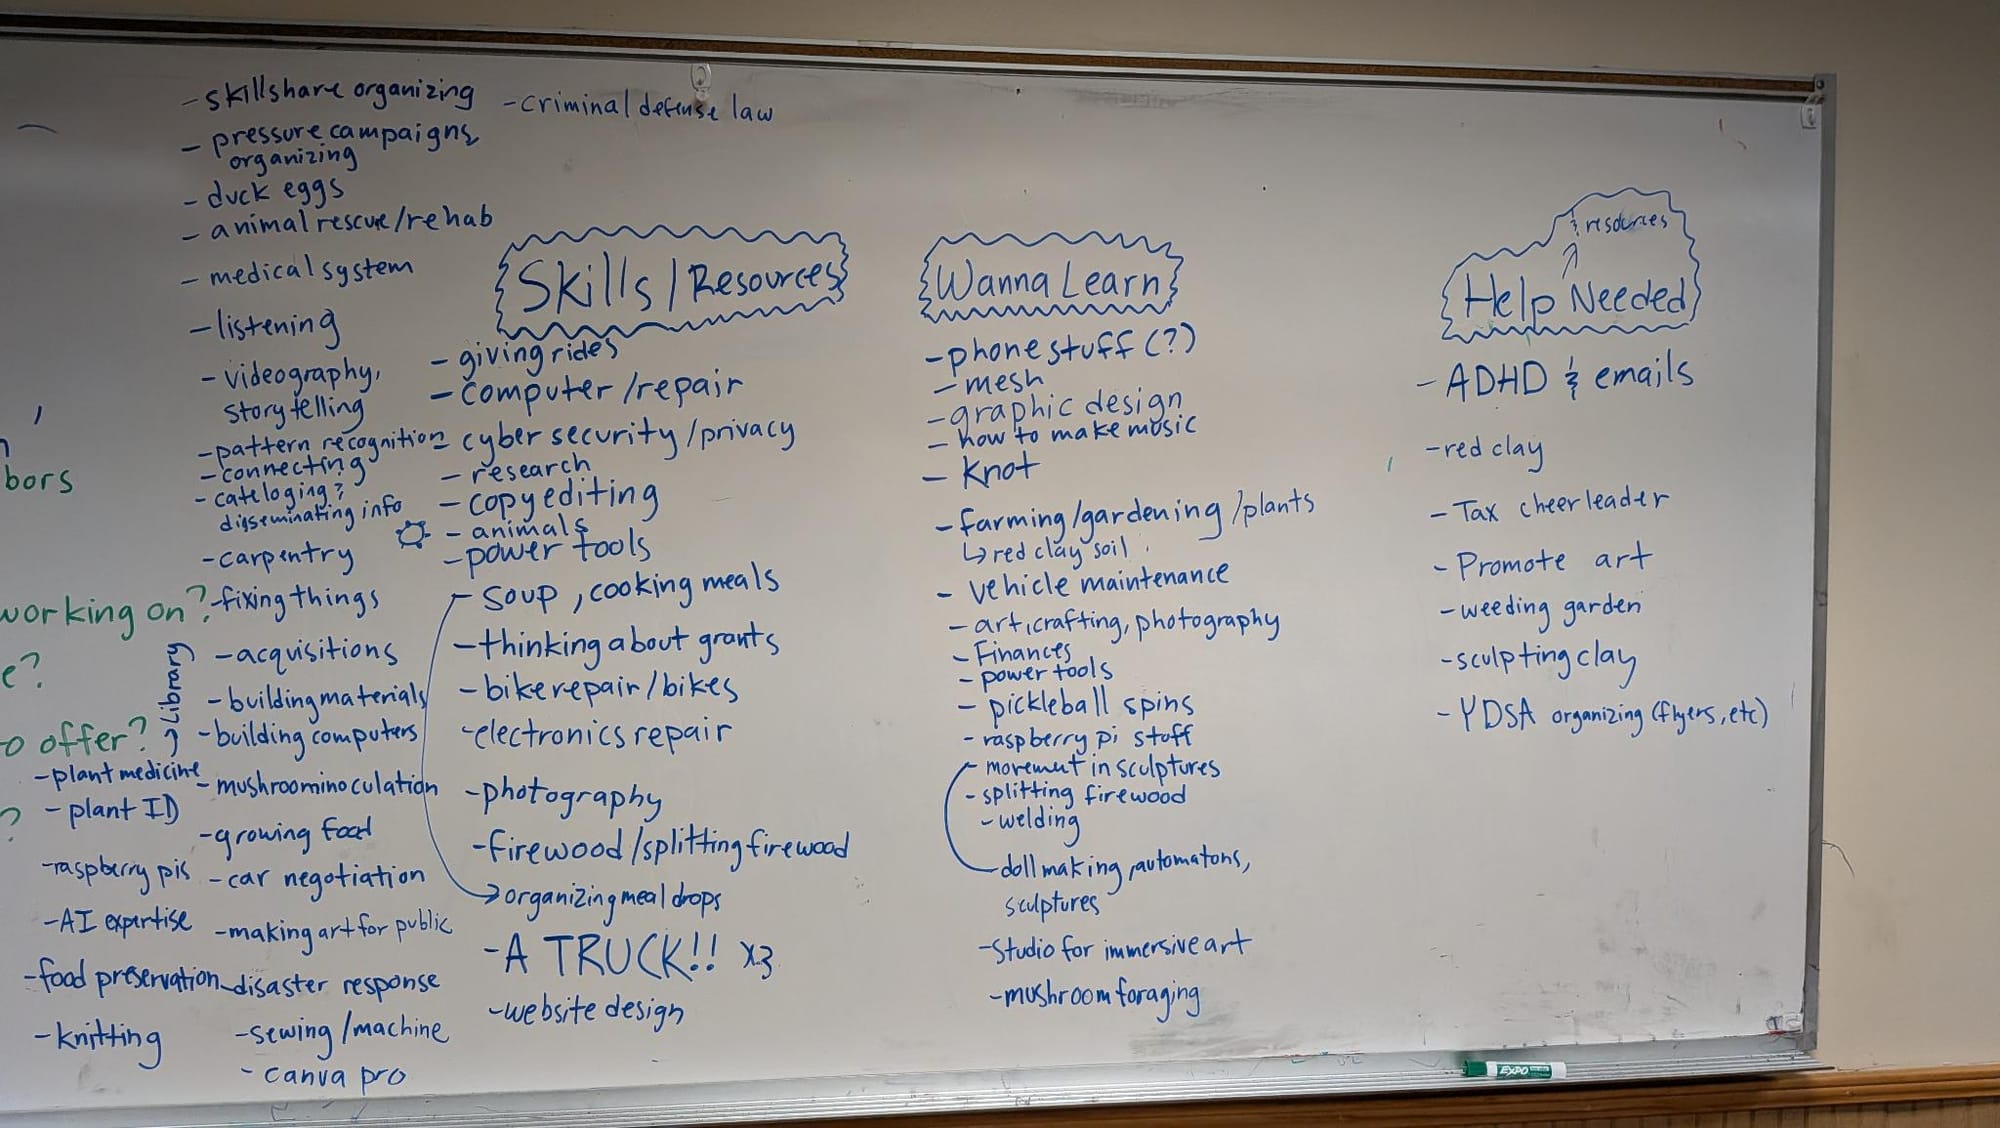 - skillshare organizing
- pressure campaigns
organizing
- duck eggs
- animal rescue/rehab
- medical system
- listening
- videography,
storytelling
- pattern recognition
- connecting
- cateloging &
disseminating info
- carpentry
- fixing things
- acquisitions
- building materials
- building computers
- mushroom inoculation
- growing food
- car negotiation
- making art for public
- disaster response
- sewing/machine
- canva pro
bors
working on?
e?
o offer?
?
→ Library
- plant medicine
- plant ID
- raspberry pis
- AI expertise
- food preservation
- knitting
- criminal defense law
Skills/Resources
- giving rides
- computer/repair
- cyber security/privacy
- research
- copyediting
- animals
- power tools
- soup, cooking meals
- thinking about grants
- bike repair/bikes
- electronics repair
- photography
- firewood/splitting firewood
→ organizing meal drops
- A TRUCK!! x3
- website design
Wanna Learn
- phone stuff (?)
- mesh
- graphic design
- how to make music
- knot
- farming/gardening/plants
↳ red clay soil
- vehicle maintenance
- art, crafting, photography
- Finances
- power tools
- pickleball spins
- raspberry pi stuff
- movement in sculptures
- splitting firewood
- welding
- doll making, automatons,
sculptures
- Studio for immersive art
- mushroom foraging
& resources
Help Needed
- ADHD & emails
- red clay
- Tax cheerleader
- Promote art
- weeding garden
- sculpting clay
- YDSA organizing (flyers, etc)
EXPO